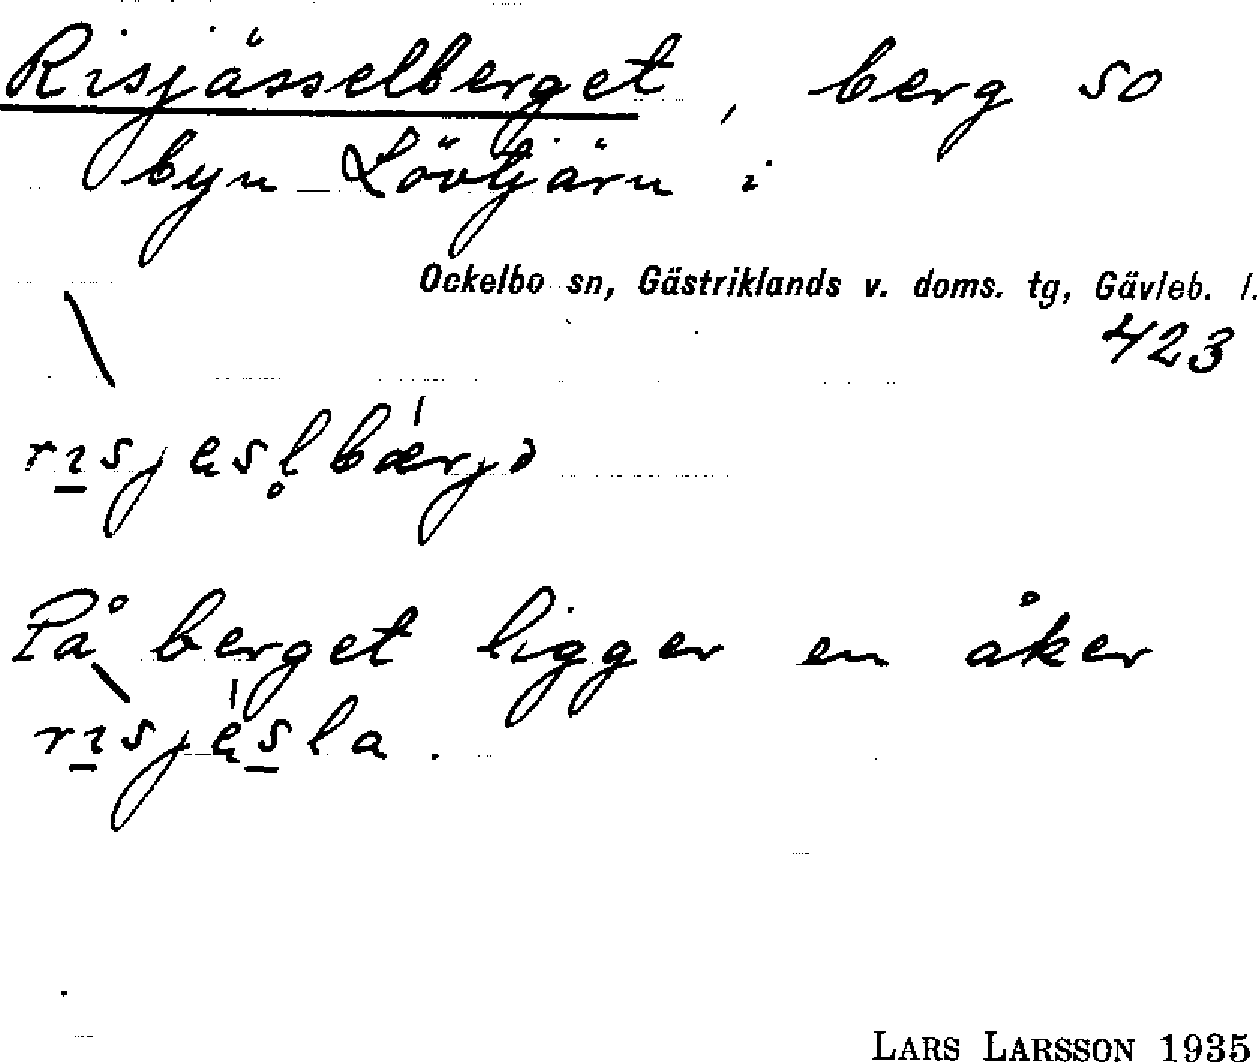 Risjässelberget, berg SO
byn Lövtjärn i
Ockelbo sn, Gästriklands v. doms. tg, Gävleb. l.
423
rısjesl̥bærjə
På berget ligger en åker
rısjesla.
LARS LARSSON 1935